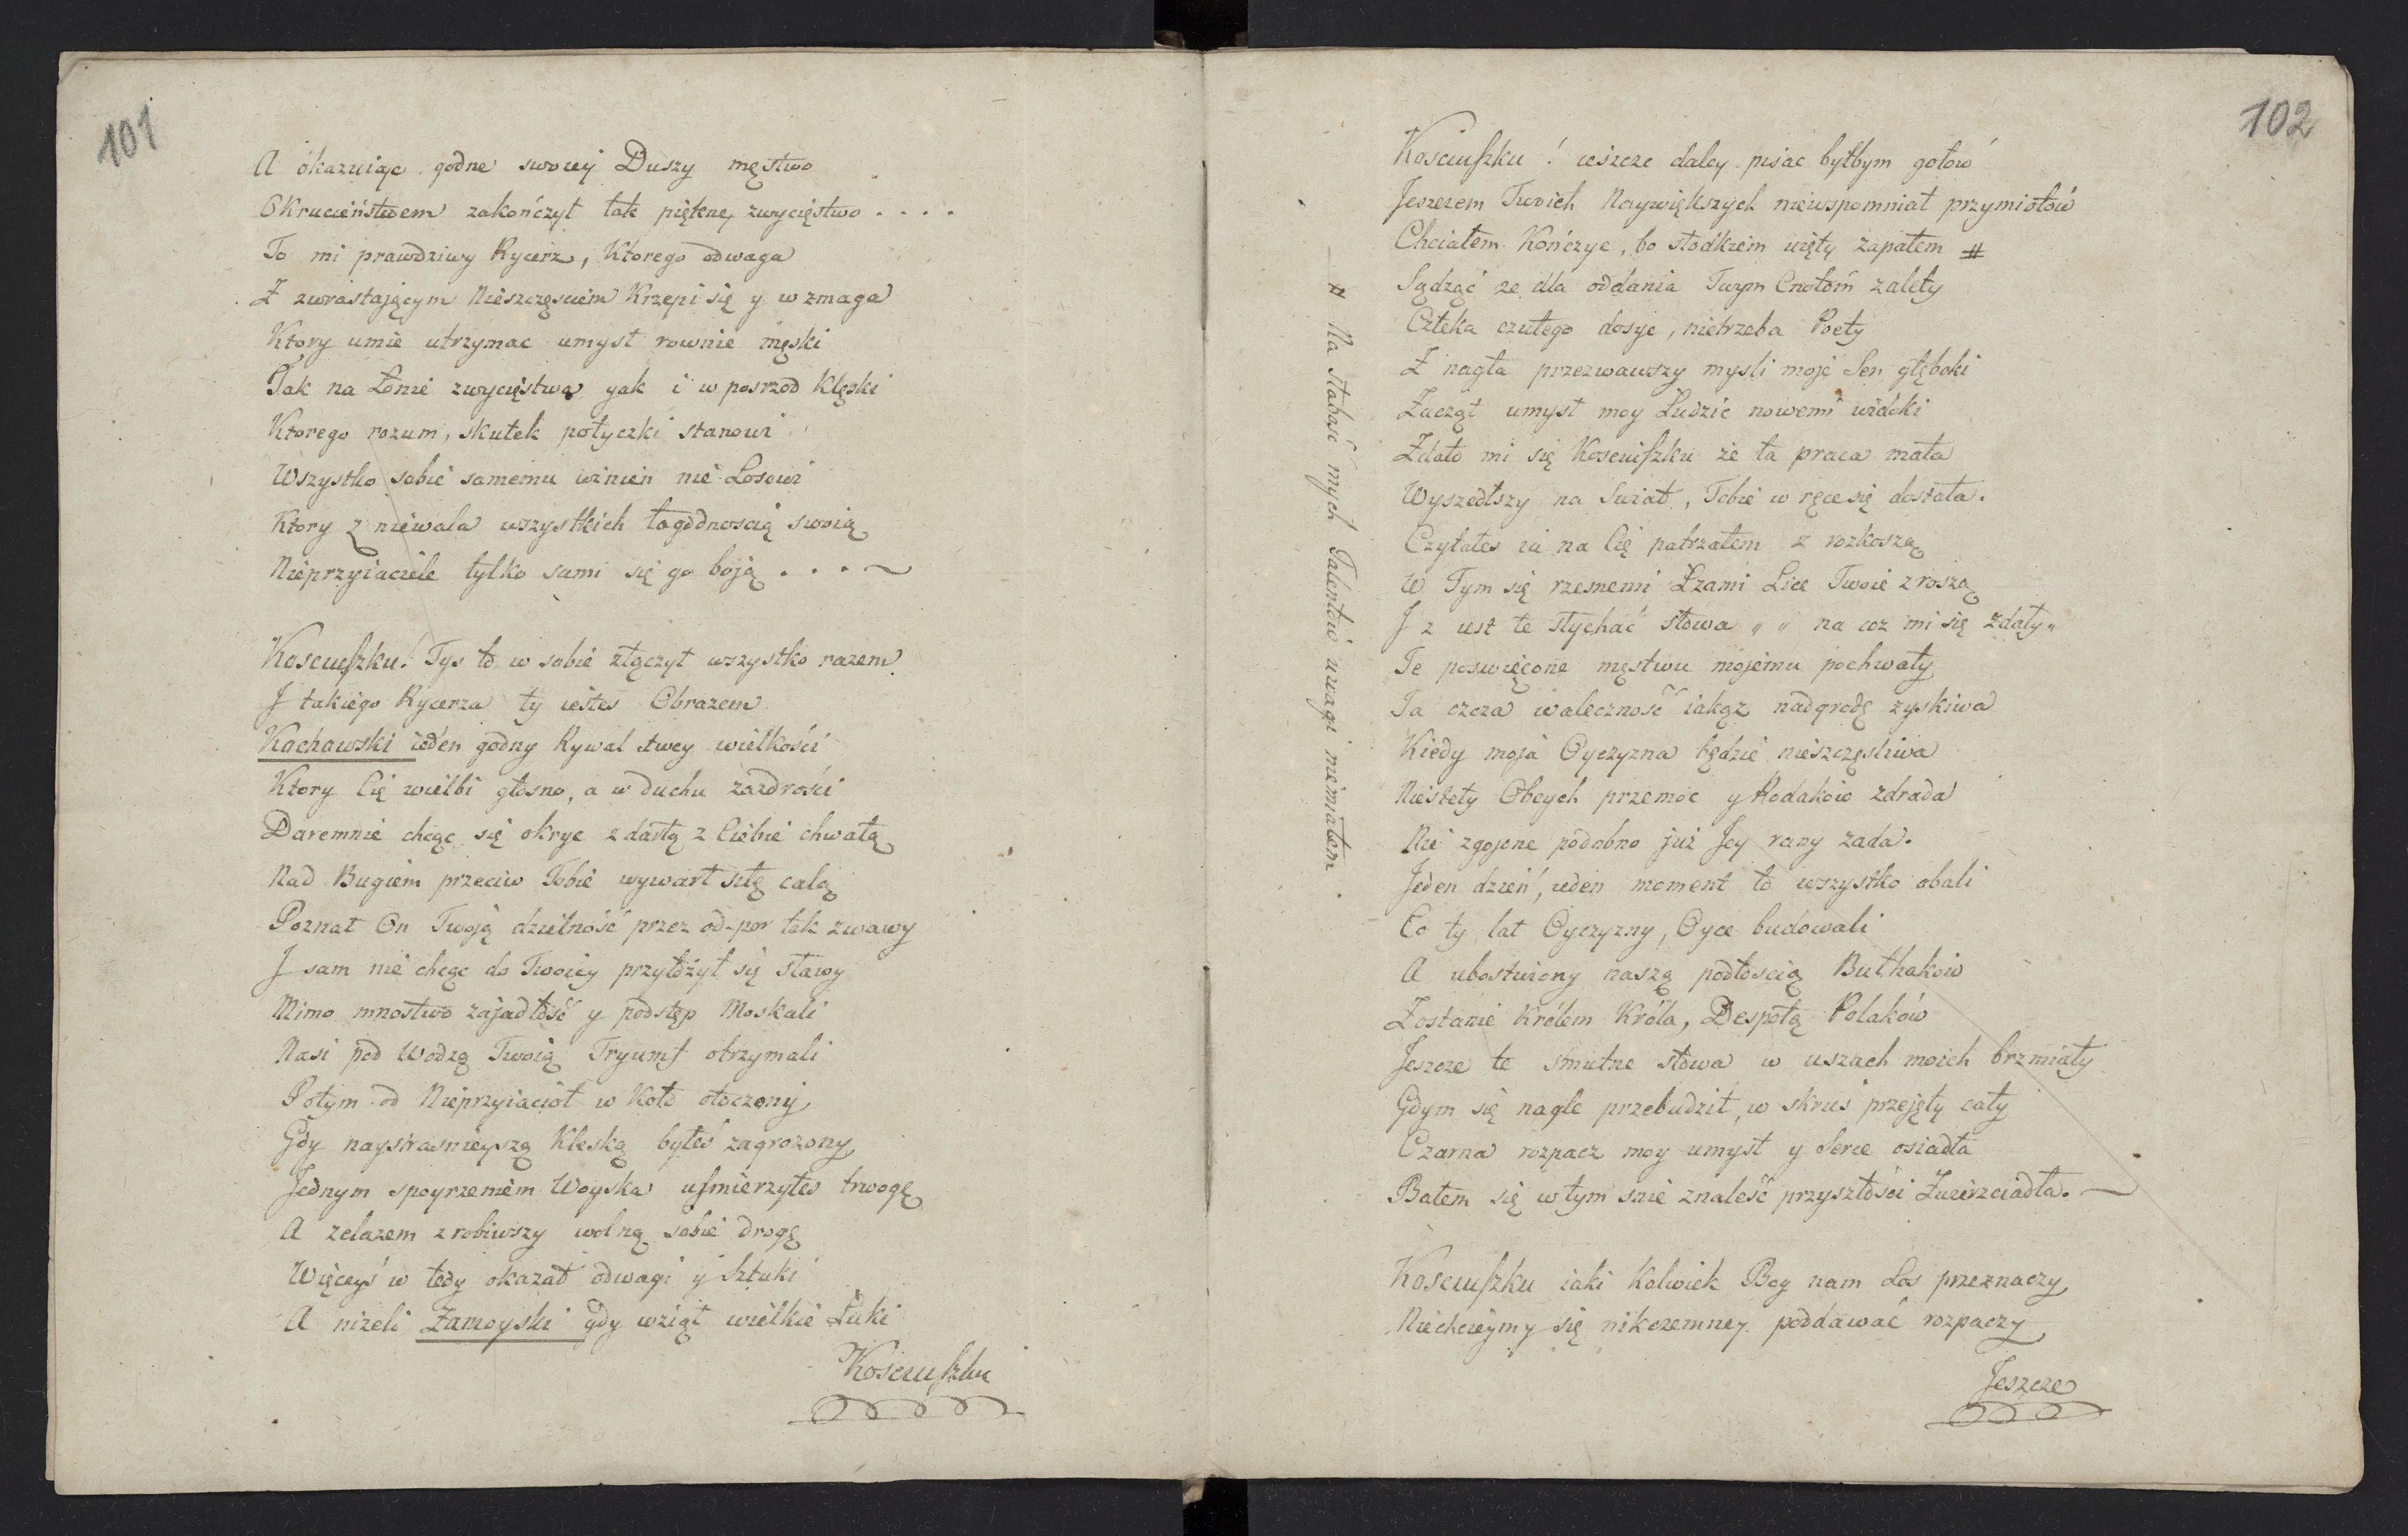 101
A okazuiąc godne swoiey Duszy męstwo
Okrucieństwem zakończył tak piękne, zwycięstwo . . . .
To mi prawdziwy Rycerz, Ktorego odwaga
Z zwrastającym Nieszczęsciem Krzepi się y wzmaga
Ktory umie utrzymac umysł rownie męski
Tak na Łonie zwycięstwa yak i w posrzod Klęski
Ktorego rozum, skutek potyczki stanowi
Wszystko sobie samemu winien nie Losowi
Ktory z niewala wszystkich łagodnoscią swoią
Nieprzyiaciele tylko sami się go boją . . . ~
Kosciuszku! Tys to w sobie złączył wszystko razem
J takiego Rycerza ty iestes Obrazem
Kachawski ieden godny Rywal twey wielkości
Ktory Cię wielbi głosno, a w duchu zazdrości
Daremnie chcąc się okryc zdartą z Ciebie chwałą
Nad Bugiem przeciw Tobie wywarł siłę całą
Poznał On Twoją dzielność przez od-por tak zwawy
J sam nie chcąc do Twoiey przyłożył się sławy
Mimo mnostwo zajadłość y podstęp Moskali
Nasi pod Wodzą Twoią Tryumf otrzymali
Potym od Nieprzyiacioł w Koło otoczony
Gdy naystrasnieyszą Kleską byłeś zagrozony
Jednym spoyrzeniem Woyska usmierzyłes trwogę
A zelazem zrobiwszy wolną sobie drogę
Więceyś w tedy okazał odwagi y Sztuki
A nizeli Zamoyski gdy wziął wielkie Łuki
Kosciuszku
102
Kosciuszku! ieszcze daley pisac byłbym gotow
Jeszczem Twoich Naywiększych niewspomniał przymiotów
Chciałem Kończyc, bo słodkiem uięty zapałem #
Sądząc ze dla oddania Twym Cnotóm zalety
Człeka czułego dosyc, nietrzeba Poety
Z nagła przezwawszy mysli moje Sen głęboki
Zaczął umysł moy Łudzić nowemi widoki
Zdało mi się Kosciuszku że ta praca mała
Wyszedłszy na Swiat, Tobie w ręce się dostała.
Czytałes ia na Cię patrzałem z rozkoszą
W Tym się rzesnemi Łzami Lice Twoie zroszą
J z ust te słychać słowa „ „ na coz mi się zdały„
Te poswięcone męstwu mojemu pochwały
Ta czcza waleczność iakąz nadgrodę zyskiwa
Kiedy moja Oyczyzna będzie nieszczęsliwa
Niestety Obcych przemoc y Rodakow zdrada
Nie zgojone podobno już Jey rany zada.
Jeden dzień, ieden moment to wszystko obali
Co ty lat Oyczyzny, Oyce budowali
A ubostwiony naszą podłoscią Bułhakow
Zostanie Królem Króla, Despotą Polaków
Jeszcze te smutne słowa w uszach moich brzmiały
Gdym się nagle przebudził, w skruś przejęty cały
Czarna rozpacz moy umysł y Serce osiadła
Bałem się w tym snie znaleść przyszłości Zwierzciadła. ~
Kosciuszku iaki Kolwiek Bog nam Los przeznaczy
Niechcieymy się nikczemney poddawać rozpaczy
Jeszcze
# Na słabość mych Talentów uwagi niemiałem.